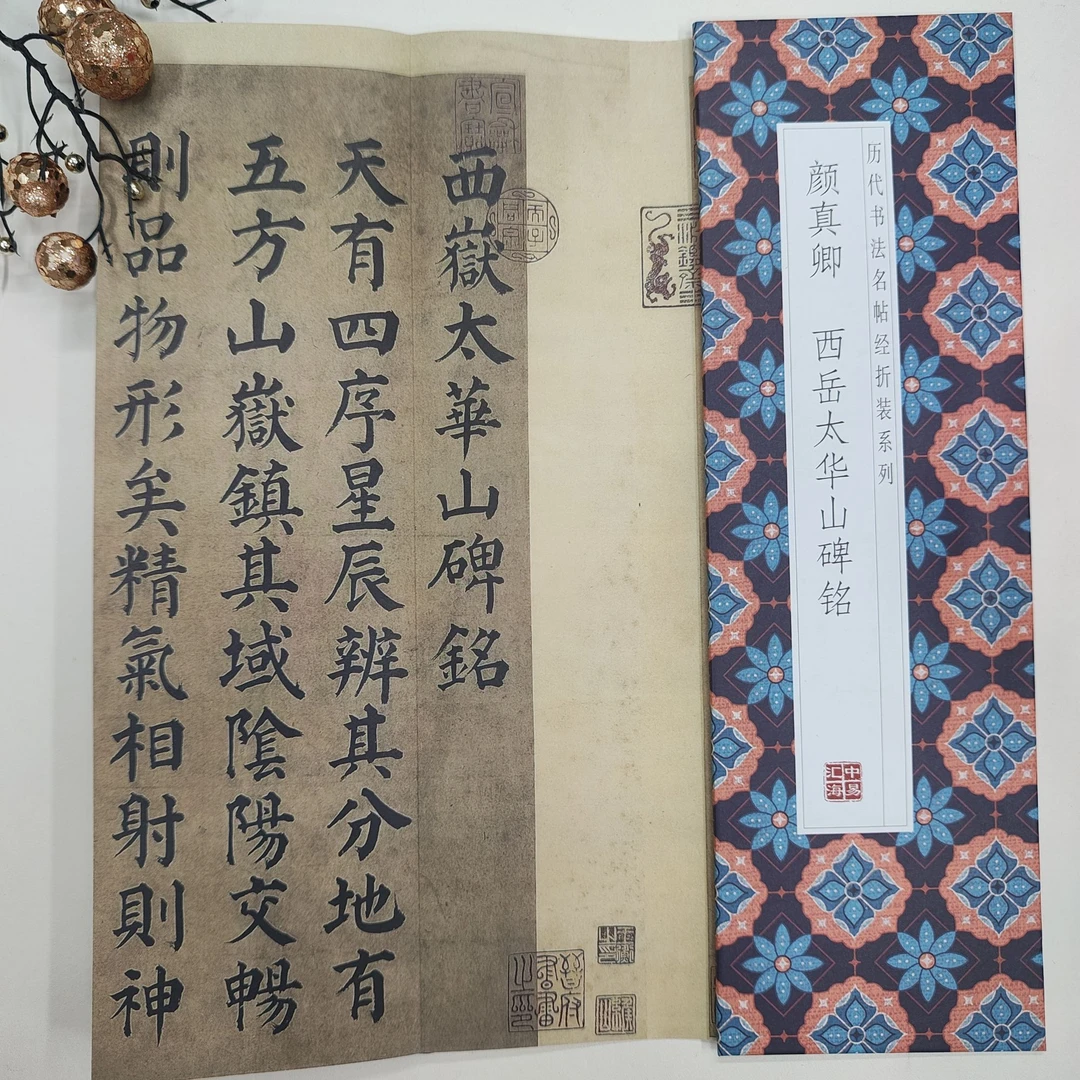 历代书法名帖经折装系列
颜真卿 西岳太华山碑铭
中易
汇海
西嶽太華山碑銘
天有四序星辰辨其分地有
五方山嶽鎮其域陰陽交暢
則品物形矣精氣相射則神